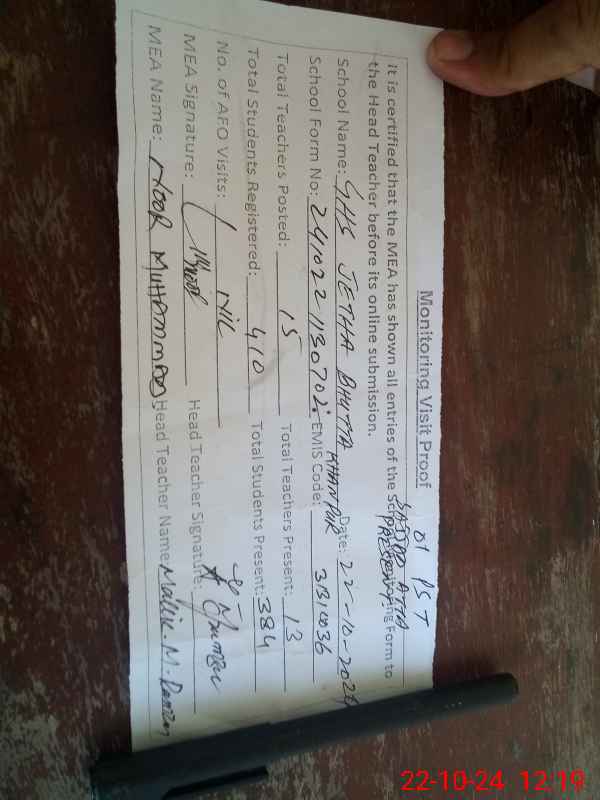 Monitoring Visit Proof 01 PST
It is certified that the MEA has shown all entries of the School Monitoring Form to
the Head Teacher before its online submission.
School Name: GHS JETHA BHUTTA KHANPUR Date: 22-10-2024
School Form No: 241022 1130702 EMIS Code: 31310036
Total Teachers Posted: 15 Total Teachers Present: 13
Total Students Registered: 410 Total Students Present: 384
No. of AEO Visits: NIL
MEA Signature: Head Teacher Signature:
MEA Name: NOOR MUHAMMAD Head Teacher Name: Malik. M.
22-10-24 12:19